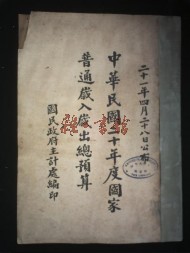 二十一年四月二十八日公布
中華民國二十年度國家
普通歲入歲出總預算
國民政府主計處編印